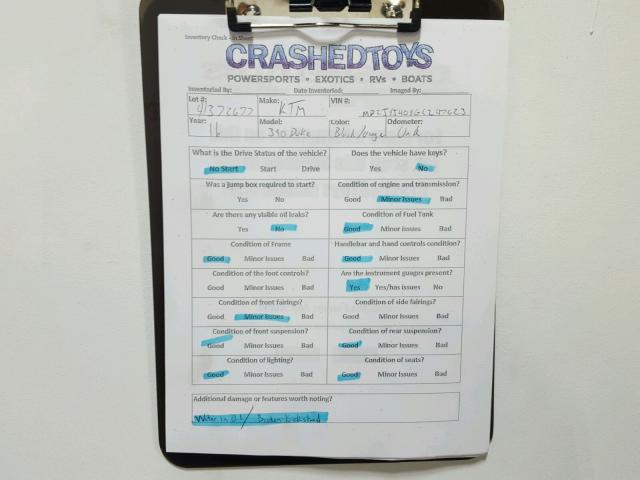 Inventory Check - In Sheet
CRASHEDTOYS
POWERSPORTS • EXOTICS • RVs • BOATS
Inventoried By: Date Inventoried: Imaged By:
Lot #: Make: KTM VIN #:
Year: 16 Model: 390 Duke Color: Odometer: Unk
What is the Drive Status of the vehicle? Does the vehicle have keys?
No Start Start Drive Yes No
Was a jump box required to start? Condition of engine and transmission?
Yes No Good Minor Issues Bad
Are there any visible oil leaks? Condition of Fuel Tank
Yes No Good Minor Issues Bad
Condition of Frame Handlebar and hand controls condition?
Good Minor Issues Bad Good Minor Issues Bad
Condition of the foot controls? Are the instrument guages present?
Good Minor Issues Bad Yes Yes/has issues No
Condition of front fairings? Condition of side fairings?
Good Minor Issues Bad Good Minor Issues Bad
Condition of front suspension? Condition of rear suspension?
Good Minor Issues Bad Good Minor Issues Bad
Condition of lighting? Condition of seats?
Good Minor Issues Bad Good Minor Issues Bad
Additional damage or features worth noting?
Water in / Broken kickstand